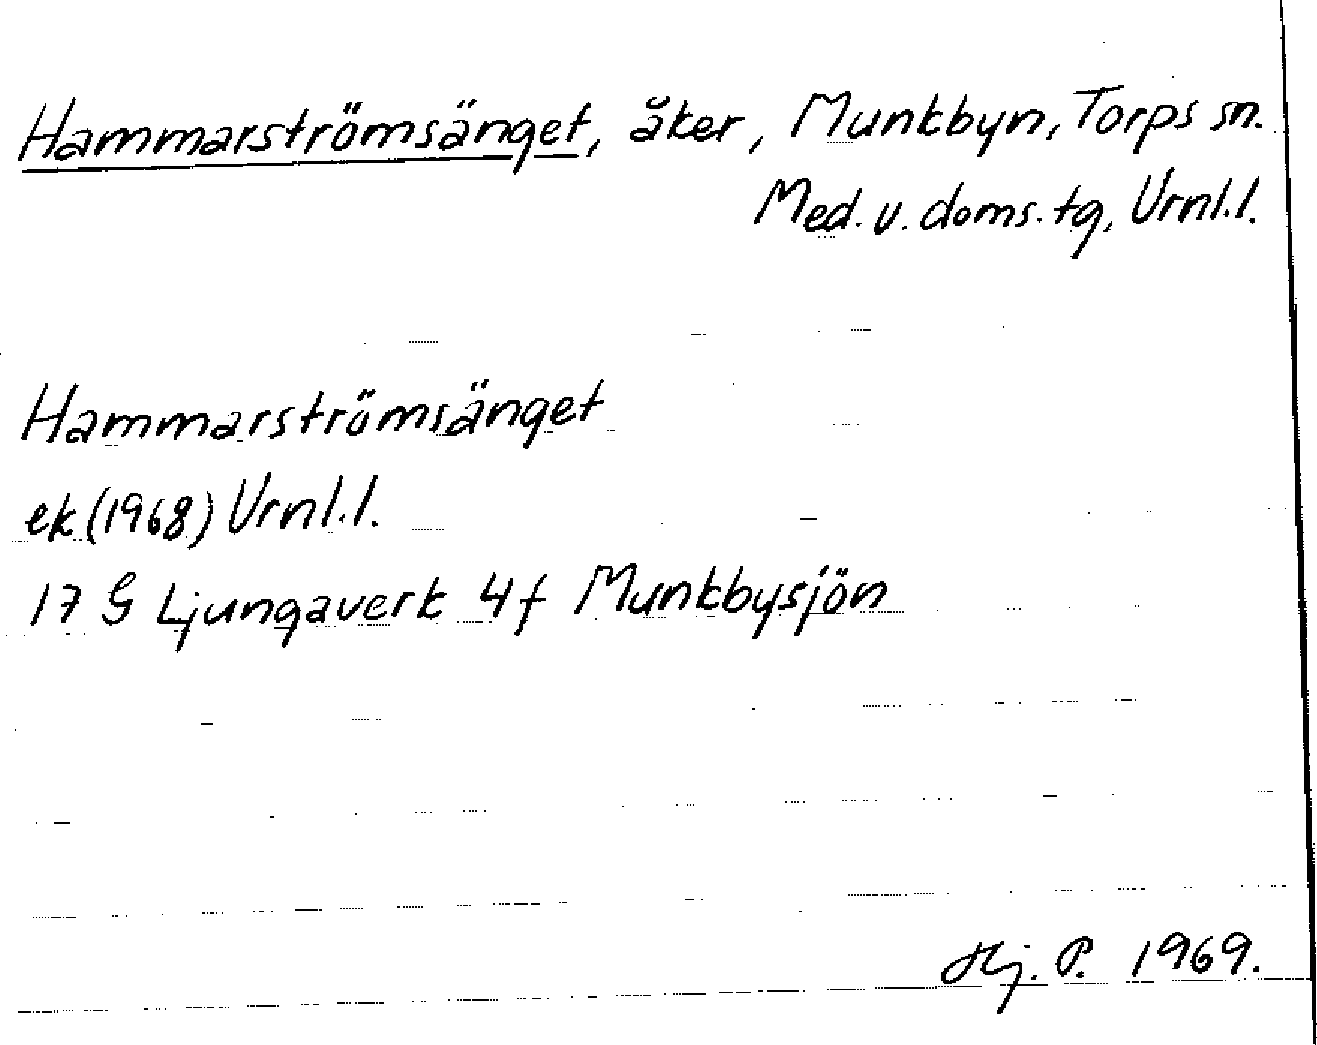 Hammarströmsänget, åker, Munkbyn, Torps sn.
Med. v. doms. tg, Vrnl.l.
Hammarströmsänget
ek (1968) Vrnl.l.
17 G Ljungaverk 4f Munkbysjön
Hj. P. 1969.